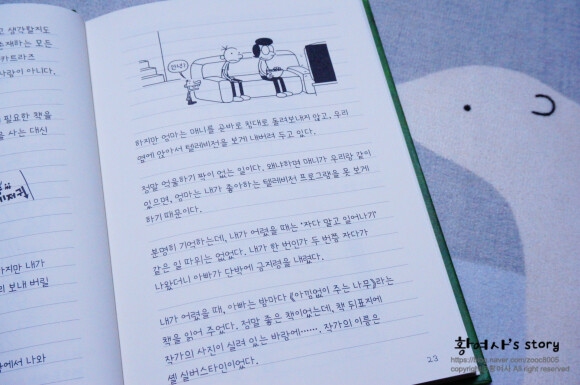 고 생각할지도
존재하는 모든
카트라즈
사람이 아니다.
필요한 책을
을 사는 대신
하지만 내가
로 보내 버릴
밖에서 나와
안녕?
하지만 엄마는 매니를 곧바로 침대로 돌려보내지 않고, 우리
옆에 앉아서 텔레비전을 보게 내버려 두고 있다.
정말 억울하기 짝이 없는 일이다. 왜냐하면 매니가 우리랑 같이
있으면, 엄마는 내가 좋아하는 텔레비전 프로그램을 못 보게
하기 때문이다.
분명히 기억하는데, 내가 어렸을 때는 '자다 말고 일어나기'
같은 일 따위는 없었다. 내가 한 번인가 두 번쯤 자다가
나왔더니 아빠가 단박에 금지령을 내렸다.
내가 어렸을 때, 아빠는 밤마다 《아낌없이 주는 나무》라는
책을 읽어 주었다. 정말 좋은 책이었는데, 책 뒤표지에
작가의 사진이 실려 있는 바람에……. 작가의 이름은
셸 실버스타인이었다.
23
황여사's story
https://blog.naver.com/zooc8005
copyright ⓒ 황여사 All right reserved